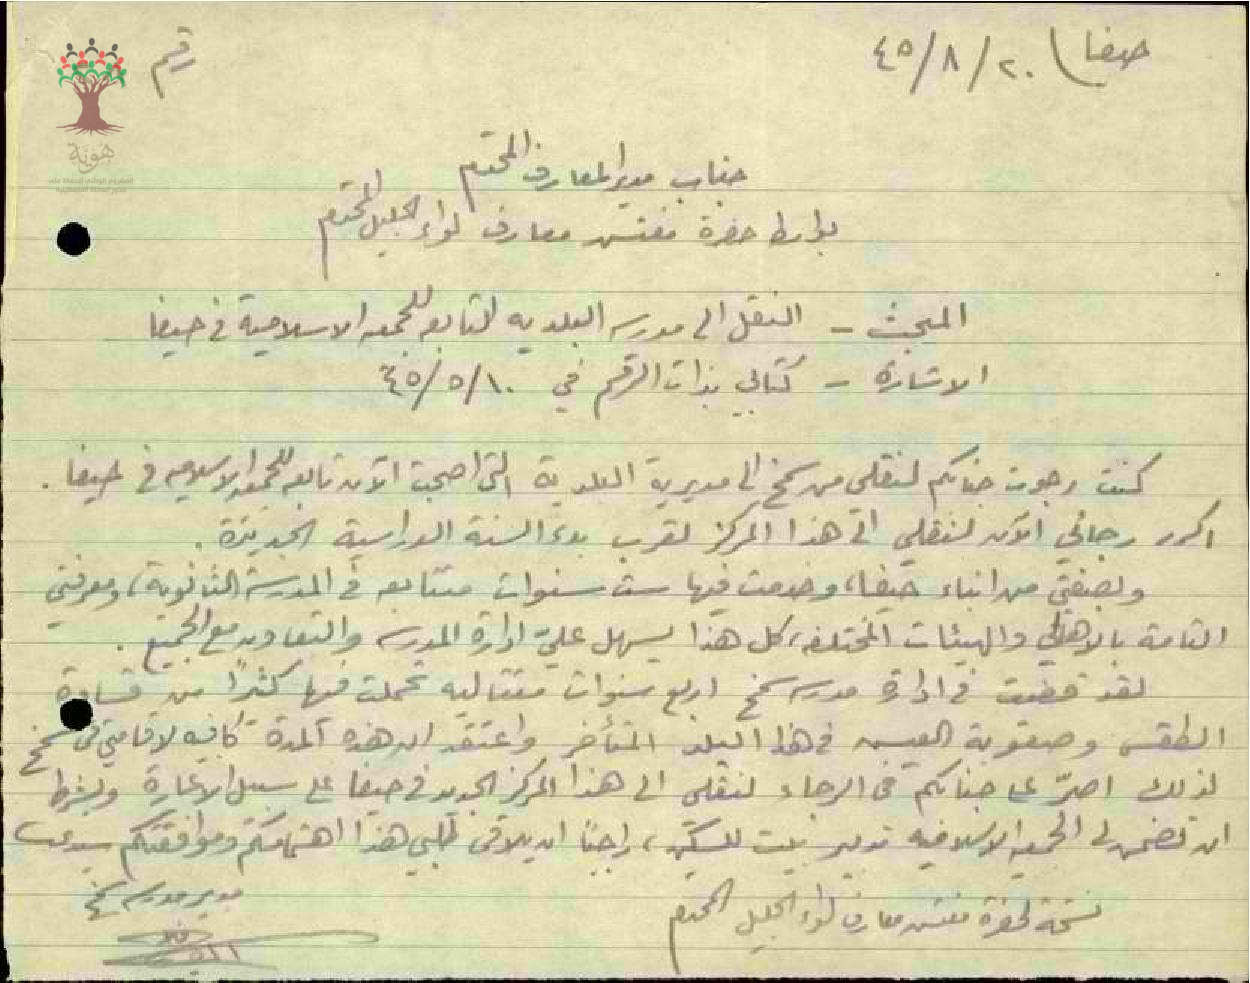 حيفا ٤٥/٨/٢٠
رقم
هوية
المشروع الوطني للحفاظ على
جذور العائلة الفلسطينية
جناب مدير المعارف المحترم
بواسطة حضرة مفتش معارف لواء الجليل المحترم
المبحث - النقل الى مدرسة البلديه التابعه للجمعه الاسلامية في حيفا
الاشارة - كتابي بذات الرقم في ٤٥/٥/١٠
كنت رجوت جنابكم لنقلي من سمخ الى مديرية البلدية التي اصبحت الآن تابعه للجمعيه الاسلاميه في حيفا .
اكرر رجائي الآن لنقلي الى هذا المركز لقرب بدء السنة الدراسية الجديدة .
وبصفتي من ابناء حيفا، وخدمت فيها ست سنوات متتابعه في المدرسة الثانوية، ومعرفتي
التامة بالاهالي والهيئات المختلفه، كل هذا يسهل علي ادارة المدرسه والتعاون مع الجميع .
لقد قضيت في ادارة مدرسة سمخ اربع سنوات متتاليه تحملت فيها كثيرًا من قساوة
الطقس وصعوبة العيش في هذا البلد المتأخر واعتقد ان هذه المدة كافيه لاقامتي في سمخ
لذلك اصرّ على جنابكم في الرجاء لنقلي الى هذا المركز الجديد في حيفا على سبيل الاعارة وبشرط
ان تضمن لي الجمعيه الاسلاميه تدبير بيت للسكن، راجيًا ان يلاقي طلبي هذا اهتمامكم وموافقتكم
مدير مدرسة سمخ
نسخة لحضرة مفتش معارف لواء الجليل المحترم